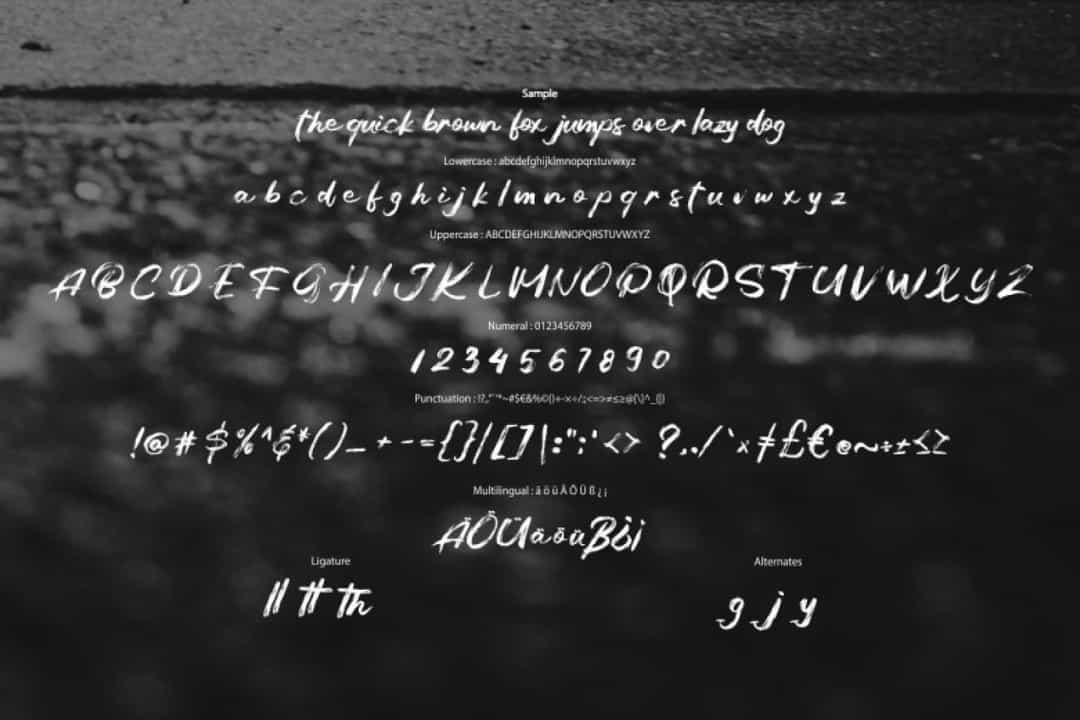 Sample
the quick brown fox jumps over lazy dog
Lowercase : abcdefghijklmnopqrstuvwxyz
a b c d e f g h i j k l m n o p q r s t u v w x y z
Uppercase : ABCDEFGHIJKLMNOPQRSTUVWXYZ
A B C D E F G H I J K L M N O P Q R S T U V W X Y Z
Numeral : 0123456789
1 2 3 4 5 6 7 8 9 0
Punctuation :
! @ # $ % ^ & * ( ) _ + - = { } / [ ] | : " ; ' < > ? . , / ` × ≠ £ € © ~ ÷ ± ≤ ≥
Multilingual : ä ö ü Ä Ö Ü ß ¿ ¡
ÄÖÜäöüß¿¡
Ligature
ll tt th
Alternates
g j y